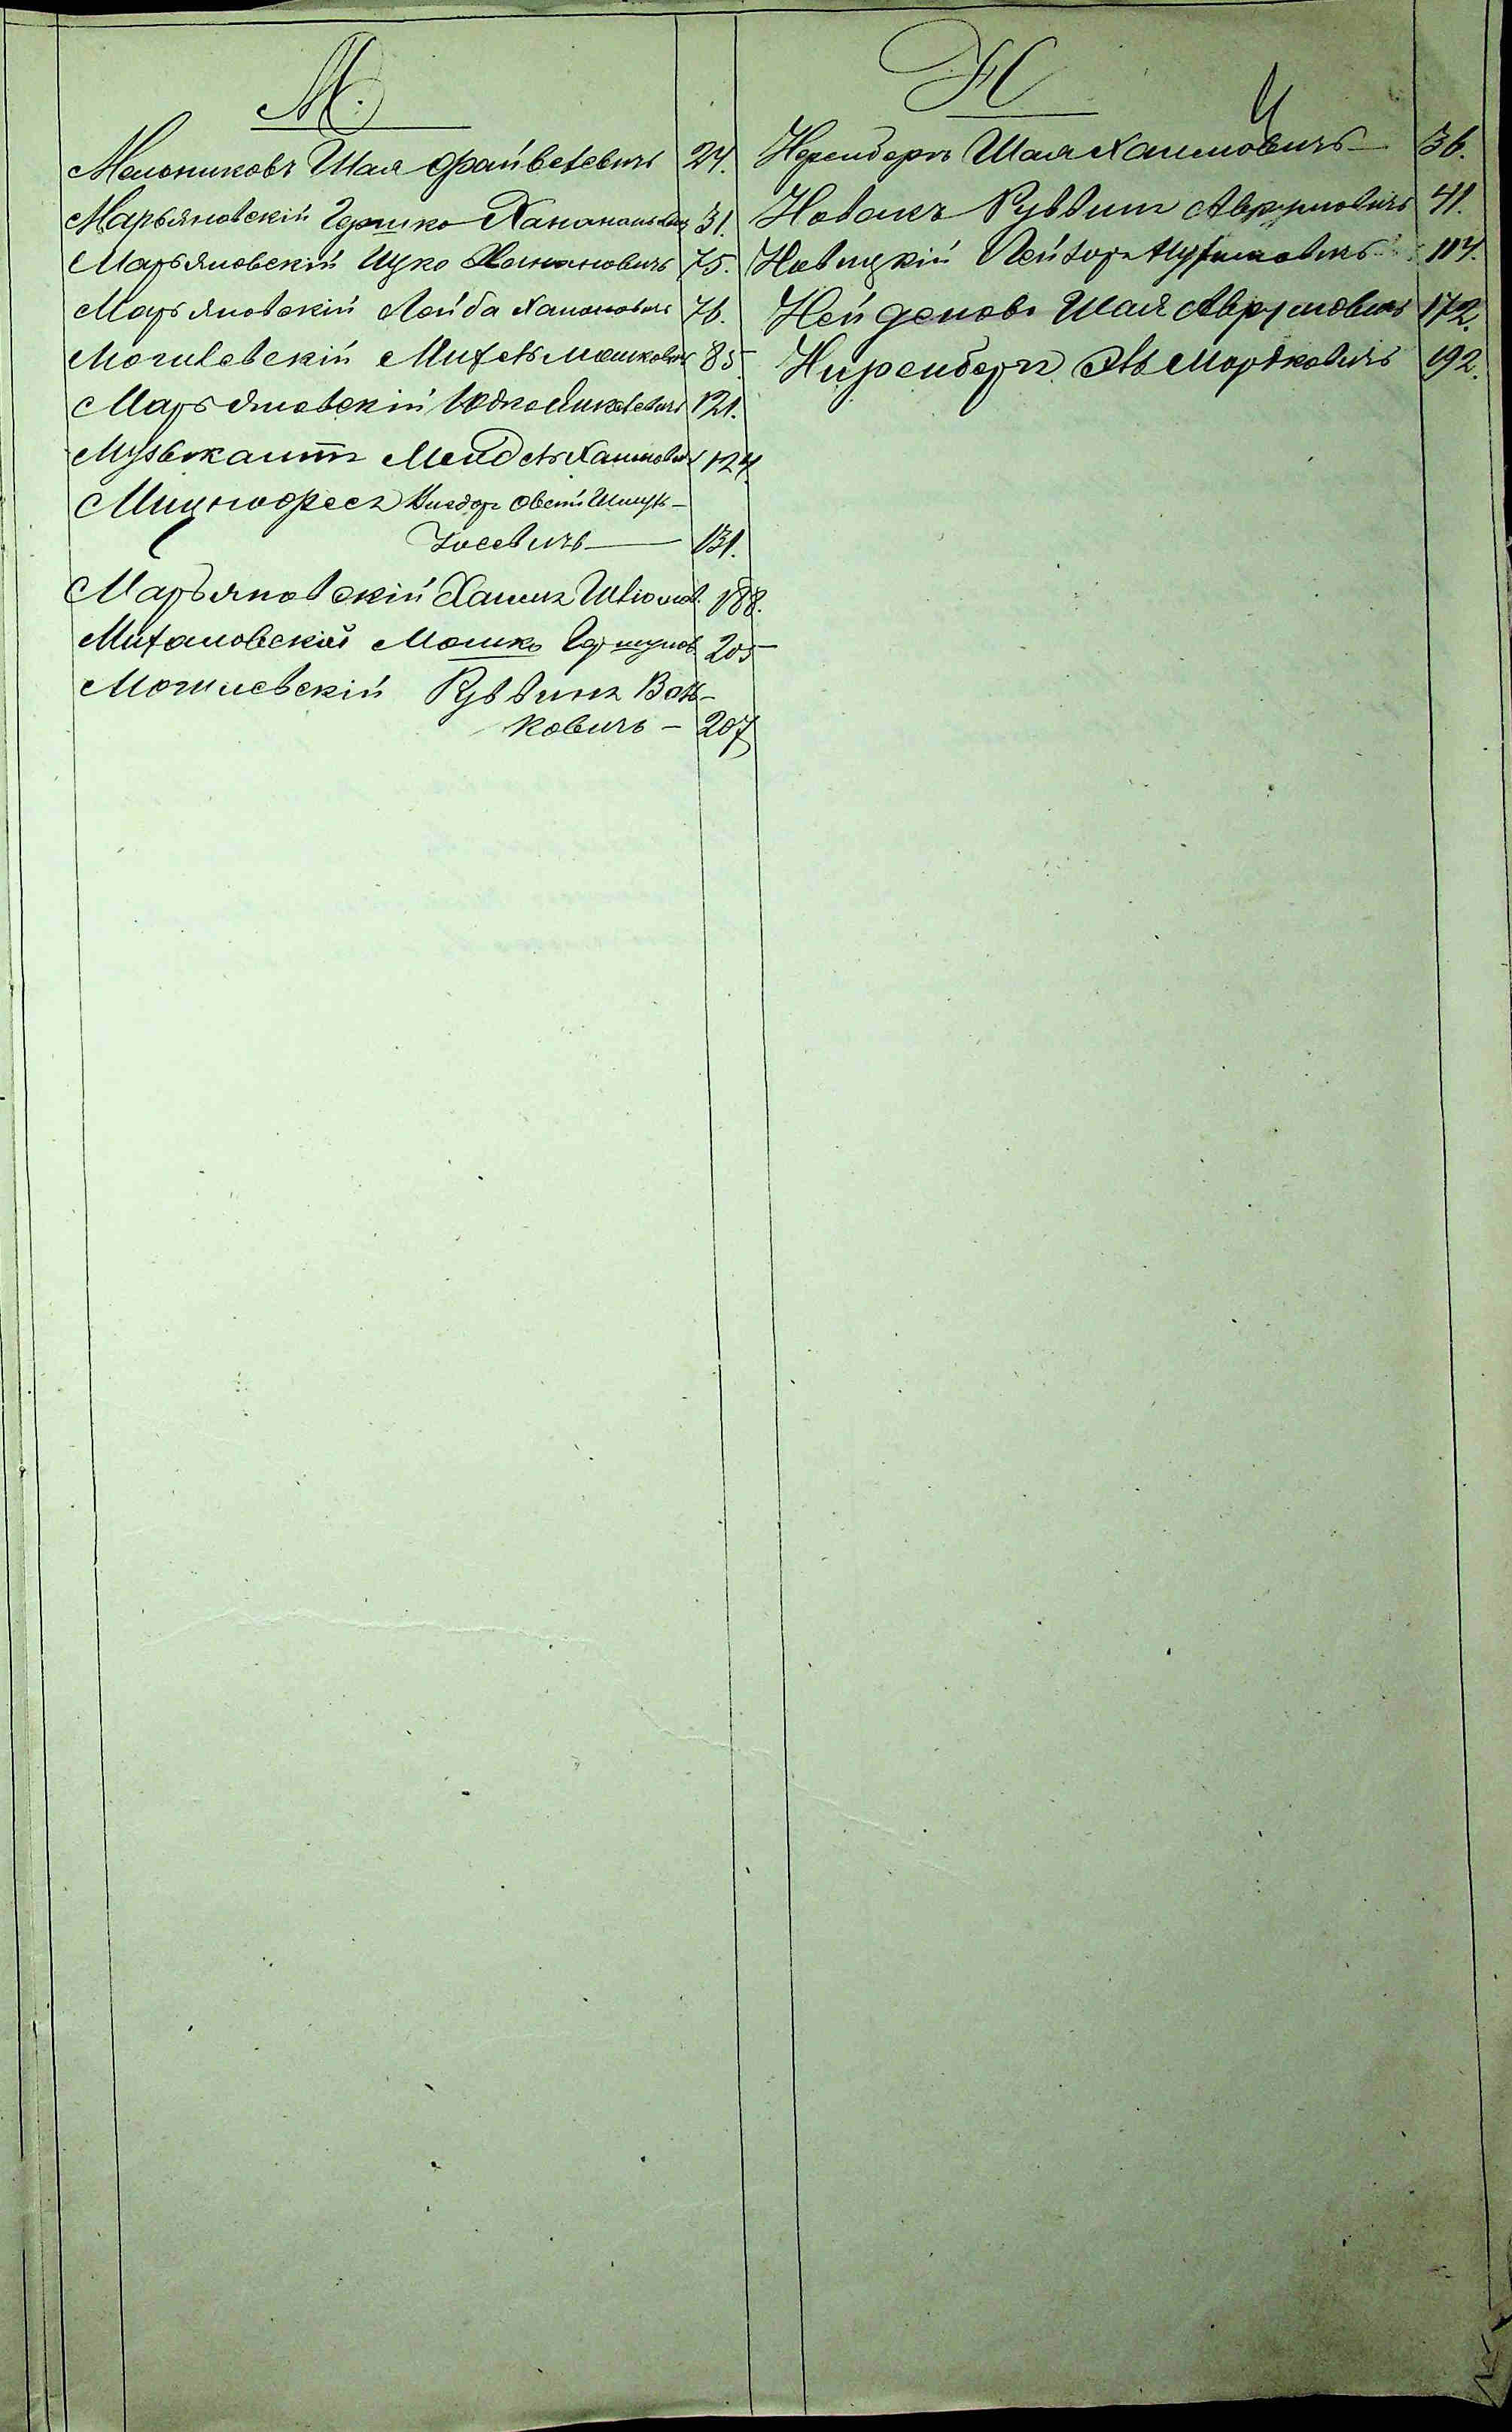 М.
Мельниковъ Шая Файвелевичъ 24.
Марьяновскій Гершко Ханановичъ 31.
Марьяновскій Ицко Ханановичъ 75.
Марьяновскій Лейба Ханоновичъ 76.
Могилевскій Михель Мошковичъ 85
Марьяновскій Іодко 121.
Музыкантъ Мендель Хаимовичъ 124.
Овсей Шмуль-
Іосевичъ — 131.
Марьяновскій Хаимъ Шліомов. 188.
Михаловскій Мошко Гершунов. 205
Могилевскій Рувинъ Воль-
ковичъ – 207
Н
Неренбергъ Шая Хаимовичъ — 36.
Новакъ Рувинъ Аврумовичъ 41.
Новицкій Лейзоръ Нухимовичъ 117.
Нейденовъ Шая Аврумовичъ 172.
Ниренбергъ Эль Мордковичъ 192.